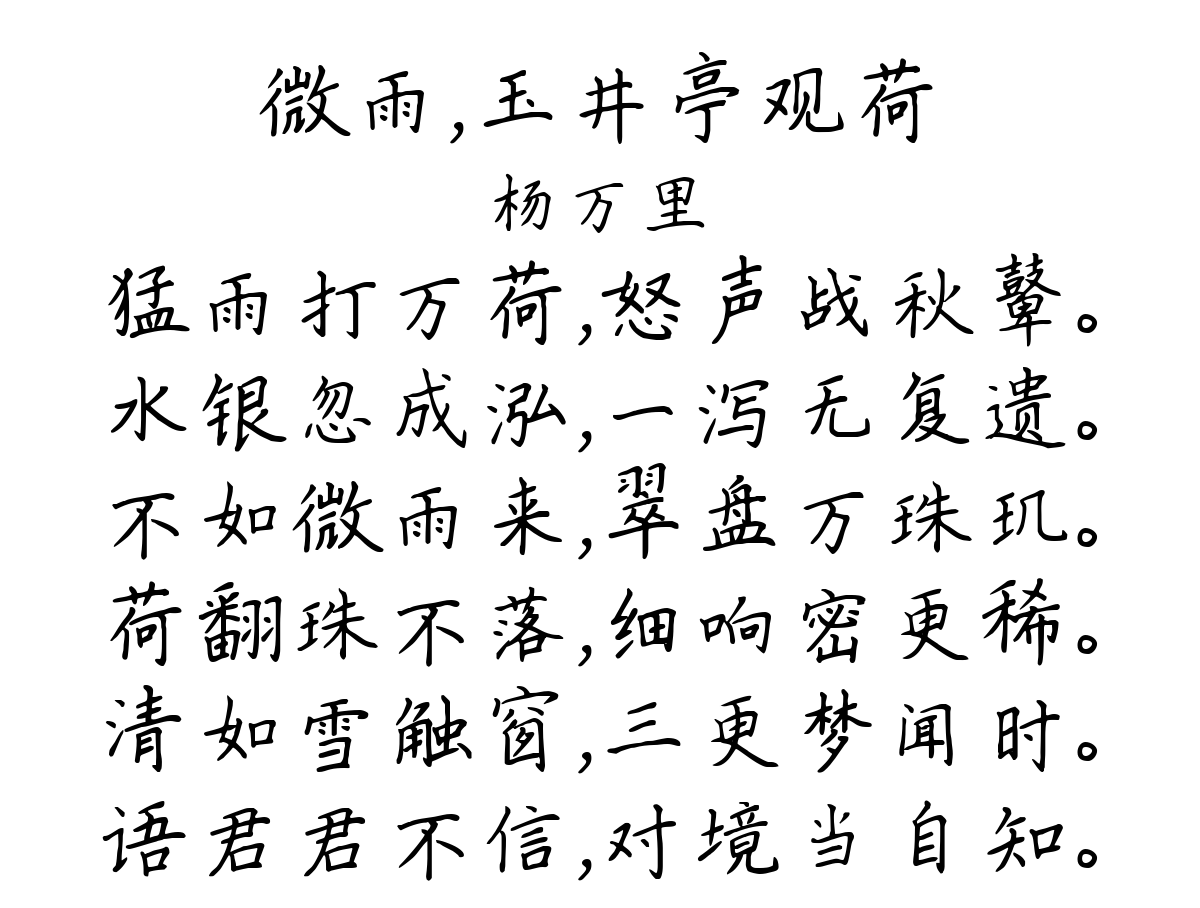 微雨,玉井亭观荷
杨万里
猛雨打万荷,怒声战秋鼙。
水银忽成泓,一泻无复遗。
不如微雨来,翠盘万珠玑。
荷翻珠不落,细响密更稀。
清如雪触窗,三更梦闻时。
语君君不信,对境当自知。